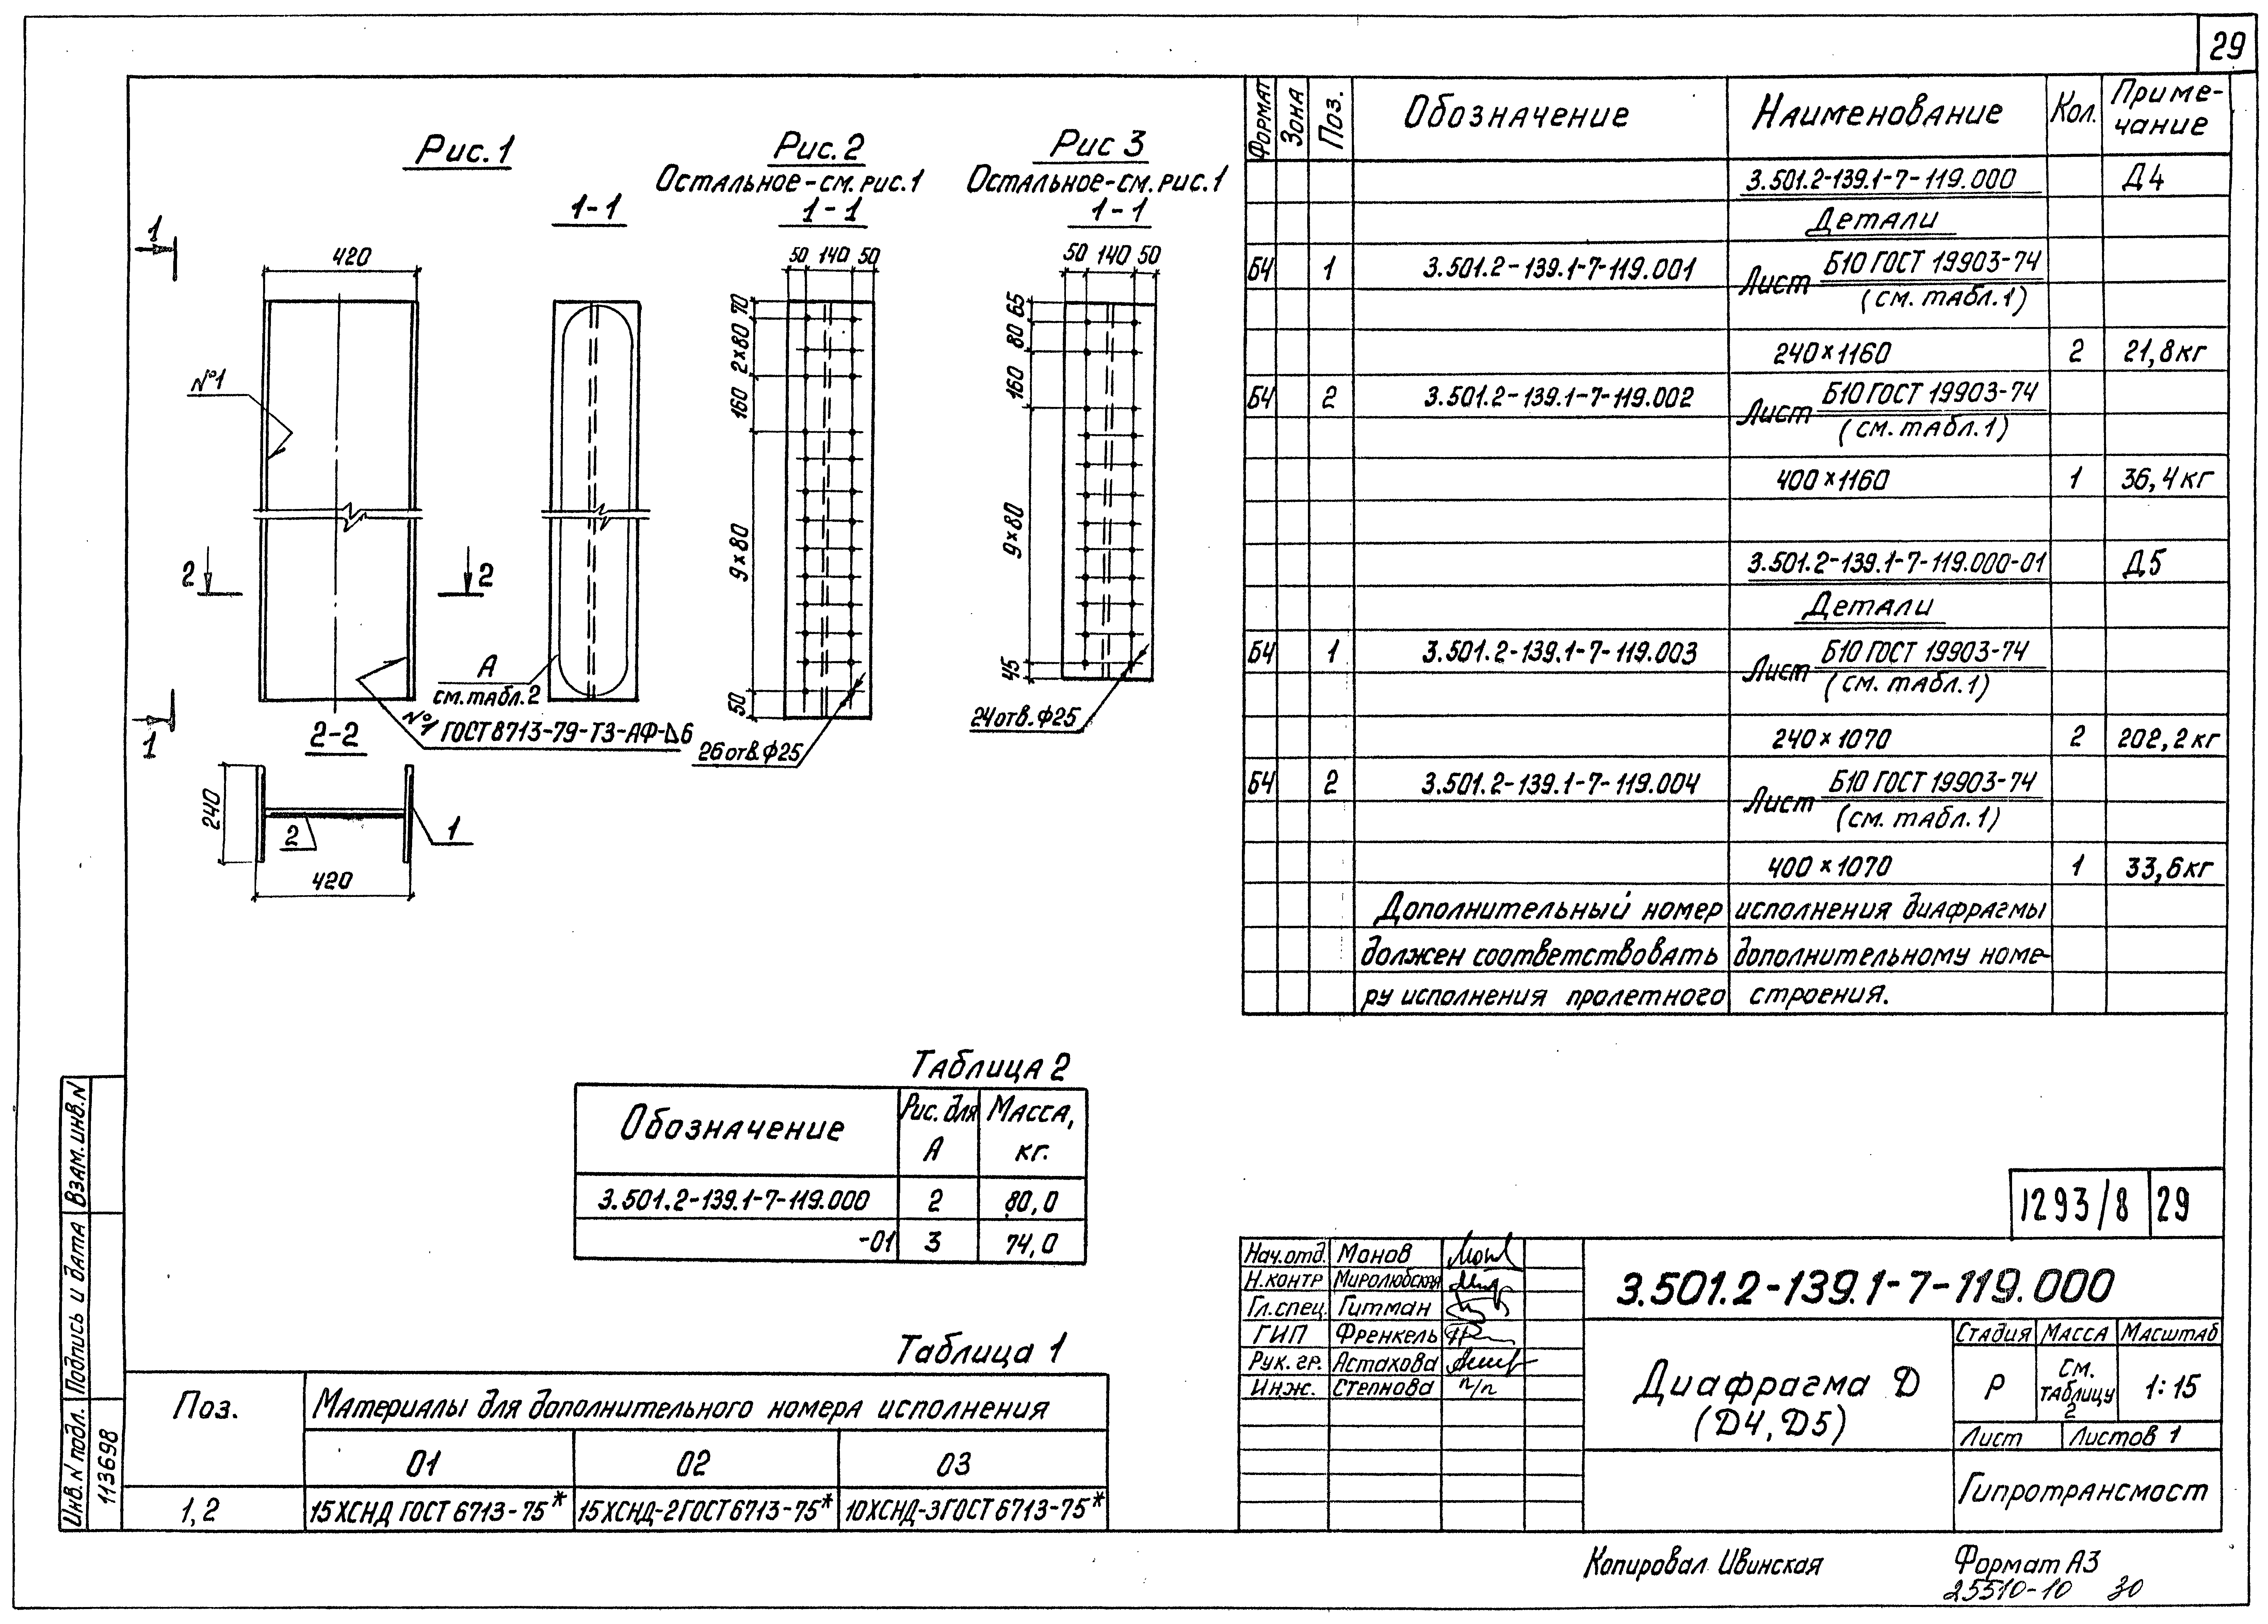 29
Рис. 1
Рис. 2
Остальное-см. рис. 1
Рис 3
Остальное-см. рис. 1
1-1
1-1
1-1
1
420
50 140 50
50 140 50
70
2×80
160
9×80
50
65
80
160
9×80
45
№1
2
2
А
см. табл. 2
№1 ГОСТ 8713-79-Т3-АФ-Δ6
26 отв. ф25
24 отв. ф25
1
2-2
240
2
1
420
Формат
Зона
Поз.
Обозначение
Наименование
Кол.
Приме-
чание
3.501.2-139.1-7-119.000 Д4
Детали
Б4 1 3.501.2-139.1-7-119.001 Лист Б10 ГОСТ 19903-74
(см. табл. 1)
240×1160 2 21,8кг
Б4 2 3.501.2-139.1-7-119.002 Лист Б10 ГОСТ 19903-74
(см. табл. 1)
400×1160 1 36,4кг
3.501.2-139.1-7-119.000-01 Д5
Детали
Б4 1 3.501.2-139.1-7-119.003 Лист Б10 ГОСТ 19903-74
(см. табл. 1)
240×1070 2 202,2кг
Б4 2 3.501.2-139.1-7-119.004 Лист Б10 ГОСТ 19903-74
(см. табл. 1)
400×1070 1 33,6кг
Дополнительный номер исполнения диафрагмы
должен соответствовать дополнительному номе-
ру исполнения пролетного строения.
Таблица 2
Обозначение
Рис. для
А
Масса,
кг.
3.501.2-139.1-7-119.000 2 80,0
-01 3 74,0
Таблица 1
Поз. Материалы для дополнительного номера исполнения
01 02 03
1,2 15ХСНД ГОСТ 6713-75* 15ХСНД-2 ГОСТ 6713-75* 10ХСНД-3 ГОСТ 6713-75*
Взам. инв. N
Подпись и дата
Инв. N подл.
113698
1293/8 29
Нач. отд. Монов
Н. контр Миролюбская
Гл. спец. Гитман
ГИП Френкель
Рук. гр. Астахова
Инж. Степнова п/п
3.501.2-139.1-7-119.000
Диафрагма Д
(Д4, Д5)
Стадия Масса Масштаб
Р
см.
таблицу
2
1:15
Лист Листов 1
Гипротрансмост
Копировал Ивинская
Формат А3
25510-10 30